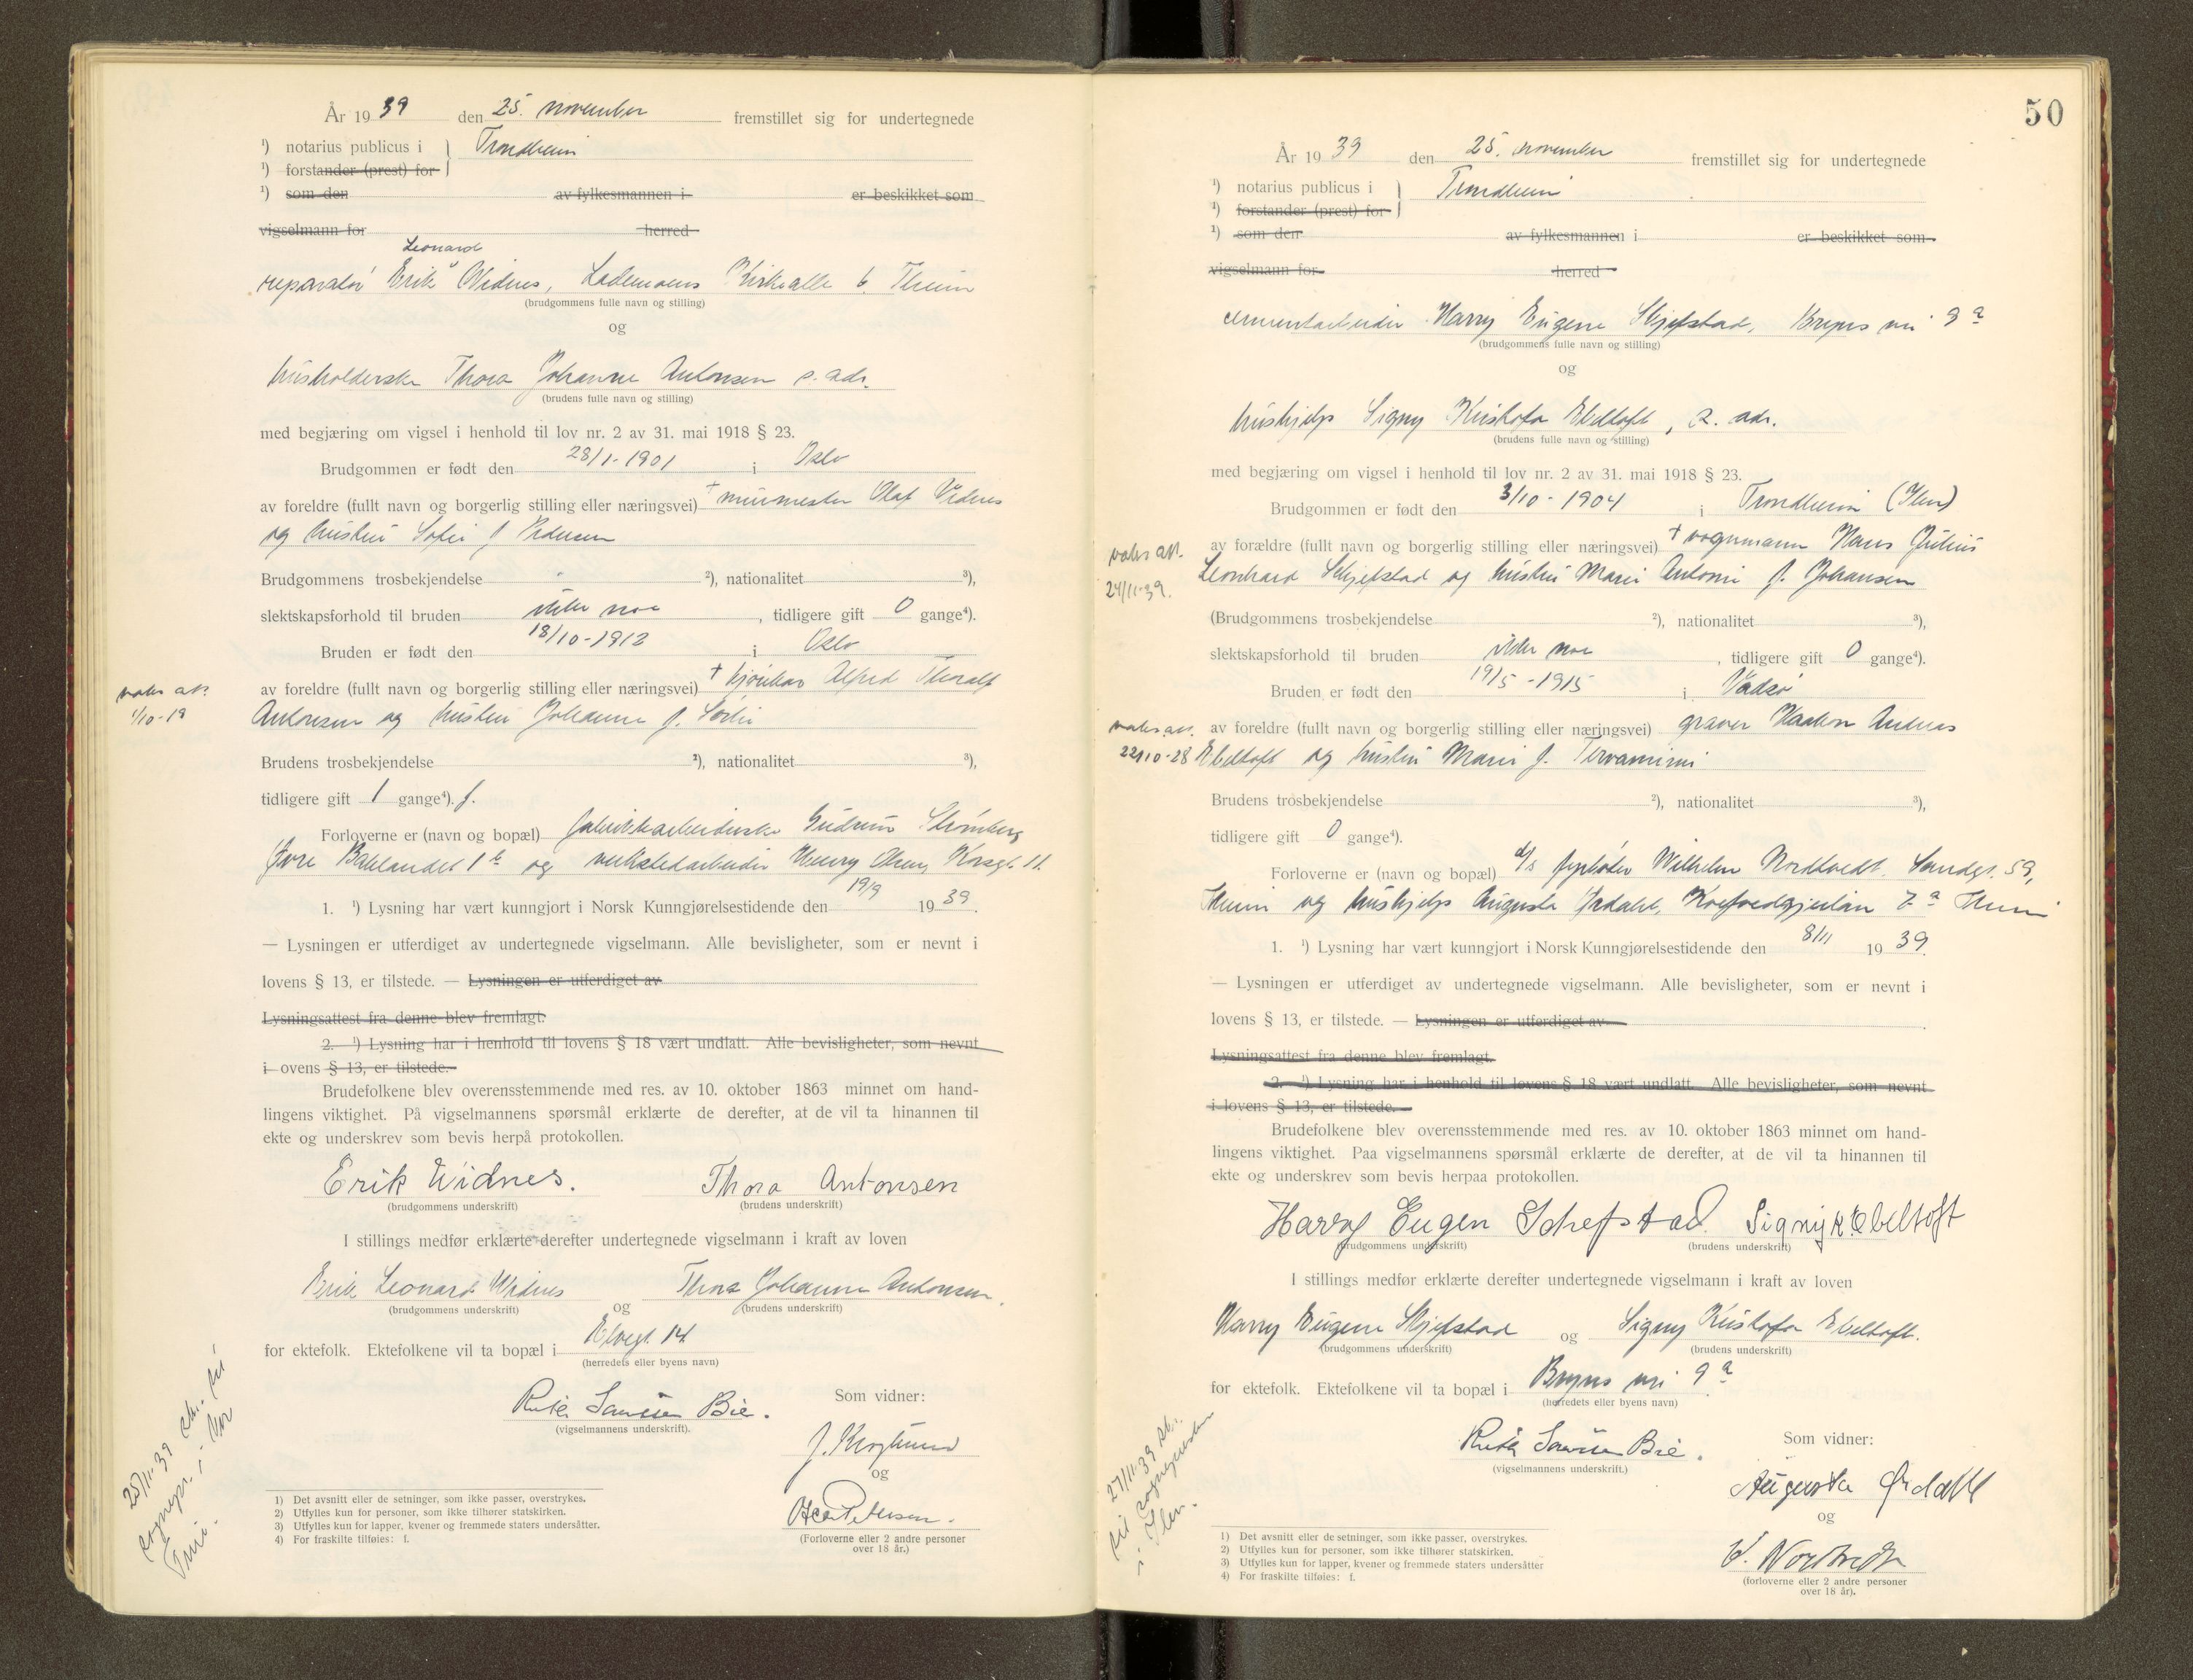 År 1939 den 25. november fremstillet sig for undertegnede
¹) notarius publicus i } Trondheim
¹) forstander (prest) for
¹) som den av fylkesmannen i er beskikket som
vigselmann for herred
Leonard
reparatør Erik Widnes, Lademoens Kirkealle 6. Theim
(brudgommens fulle navn og stilling)
og
husholderske Thora Johanne Antonsen s. adr.
(brudens fulle navn og stilling)
med begjæring om vigsel i henhold til lov nr. 2 av 31. mai 1918 § 23.
Brudgommen er født den 28/1-1901 i Oslo
av foreldre (fullt navn og borgerlig stilling eller næringsvei) † murmester Olaf Vidnes
og hustru Sofie f Pedersen
Brudgommens trosbekjendelse - ²), nationalitet ³),
slektskapsforhold til bruden ikke noe, tidligere gift 0 gange⁴).
Bruden er født den 18/10-1913 i Oslo
av foreldre (fullt navn og borgerlig stilling eller næringsvei) † Alfred Thoralf
vaks. att.
1/10-19
Antonsen og hustru Johanne f.
Brudens trosbekjendelse ²), nationalitet ³),
tidligere gift 1 gange⁴). f.
Forloverne er (navn og bopæl) fabrikkarbeiderske Gudrun Strömberg
Øvre Baklandet 1 b og verkstedarbeider Henry Olsen, Korsgt. 11.
1. ¹) Lysning har vært kunngjort i Norsk Kunngjørelsestidende den 19/9 1939.
— Lysningen er utferdiget av undertegnede vigselmann. Alle bevisligheter, som er nevnt i
lovens § 13, er tilstede. — Lysningen er utferdiget av
Lysningsattest fra denne blev fremlagt.
2. ¹) Lysning har i henhold til lovens § 18 vært undlatt. Alle bevisligheter, som nevnt
i ovens § 13, er tilstede.
Brudefolkene blev overensstemmende med res. av 10. oktober 1863 minnet om hand-
lingens viktighet. På vigselmannens spørsmål erklærte de derefter, at de vil ta hinannen til
ekte og underskrev som bevis herpå protokollen.
Erik Widnes. Thora Antonsen
(brudgommens underskrift) (brudens underskrift)
I stillings medfør erklærte derefter undertegnede vigselmann i kraft av loven
Erik Leonard Widnes og Thora Johanne Antonsen.
(brudgommens underskrift) (brudens underskrift)
for ektefolk. Ektefolkene vil ta bopæl i Elvegt. 14
(herredets eller byens navn)
Bie.
(vigselmannens underskrift).
Som vidner:
J. Kroglund
og
Petersen.
(Forloverne eller 2 andre personer
over 18 år.)
25/11-39
sognepr. i
Tr.heim.
1) Det avsnitt eller de setninger, som ikke passer, overstrykes.
2) Utfylles kun for personer, som ikke tilhører statskirken.
3) Utfylles kun for lapper, kvener og fremmede staters undersåtter.
4) For fraskilte tilføies: f.
50
År 1939 den 25. november fremstillet sig for undertegnede
¹) notarius publicus i } Trondheim
¹) forstander (prest) for
¹) som den av fylkesmannen i er beskikket som
vigselmann for herred
cementarbeider Harry Eugene Skjefstad, Bryns vei 9 a
(brudgommens fulle navn og stilling)
og
hushjelp Signy Kristofa Ebeltoft, s. adr.
(brudens fulle navn og stilling)
med begjæring om vigsel i henhold til lov nr. 2 av 31. mai 1918 § 23.
Brudgommen er født den 3/10-1904 i Trondheim (Ilen)
av forældre (fullt navn og borgerlig stilling eller næringsvei) † vognmann Hans Julius
vaks att.
24/11-39.
Leonhard Skjefstad og hustru Marie Antonie f. Johansen
(Brudgommens trosbekjendelse ²), nationalitet ³),
slektskapsforhold til bruden ikke noe, tidligere gift 0 gange⁴).
Bruden er født den 19/5-1915 i Vadsø
av foreldre (fullt navn og borgerlig stilling eller næringsvei) graver Haakon Andreas
vaks. att.
22/10-28
Ebeltoft og hustru Marie f. Tervaniemi
Brudens trosbekjendelse ²), nationalitet ³),
tidligere gift 0 gange⁴).
Forloverne er (navn og bopæl) d/s fyrbøter Wilhelm Nordtvedt, Sandgt. 59,
Theim og hushjelp Augusta Ørdahl, Koefoedgjeilan 7 a Theim
1. ¹) Lysning har vært kunngjort i Norsk Kunngjørelsestidende den 8/11 1939.
— Lysningen er utferdiget av undertegnede vigselmann. Alle bevisligheter, som er nevnt i
lovens § 13, er tilstede. — Lysningen er utferdiget av
Lysningsattest fra denne blev fremlagt.
2. ¹) Lysning har i henhold til lovens § 18 vært undlatt. Alle bevisligheter, som nevnt
i lovens § 13, er tilstede.
Brudefolkene blev overensstemmende med res. av 10. oktober 1863 minnet om hand-
lingens viktighet. Paa vigselmannens spørsmål erklærte de derefter, at de vil ta hinannen til
ekte og underskrev som bevis herpaa protokollen.
Harry Eugen Schefstad. Signy K. Ebeltoft
(brudgommens underskrift) (brudens underskrift)
I stillings medfør erklærte derefter undertegnede vigselmann i kraft av loven
Harry Eugene Skjefstad og Signy Kristofa Ebeltoft.
(brudgommens underskrift) (brudens underskrift)
for ektefolk. Ektefolkene vil ta bopæl i Bryns vei 9 a
(herredets eller byens navn)
Bie.
(vigselmannens underskrift.)
Som vidner:
Augusta Ørdahl
og
W. Nordtvedt
(forloverne eller 2 andre personer
over 18 år).
27/11-39
til sognepresten
i Ilen.
1) Det avsnitt eller de setninger, som ikke passer, overstrykes.
2) Utfylles kun for personer, som ikke tilhører statskirken.
3) Utfylles kun for lapper, kvener og fremmede staters undersåtter
4) For fraskilte tilføies: f.